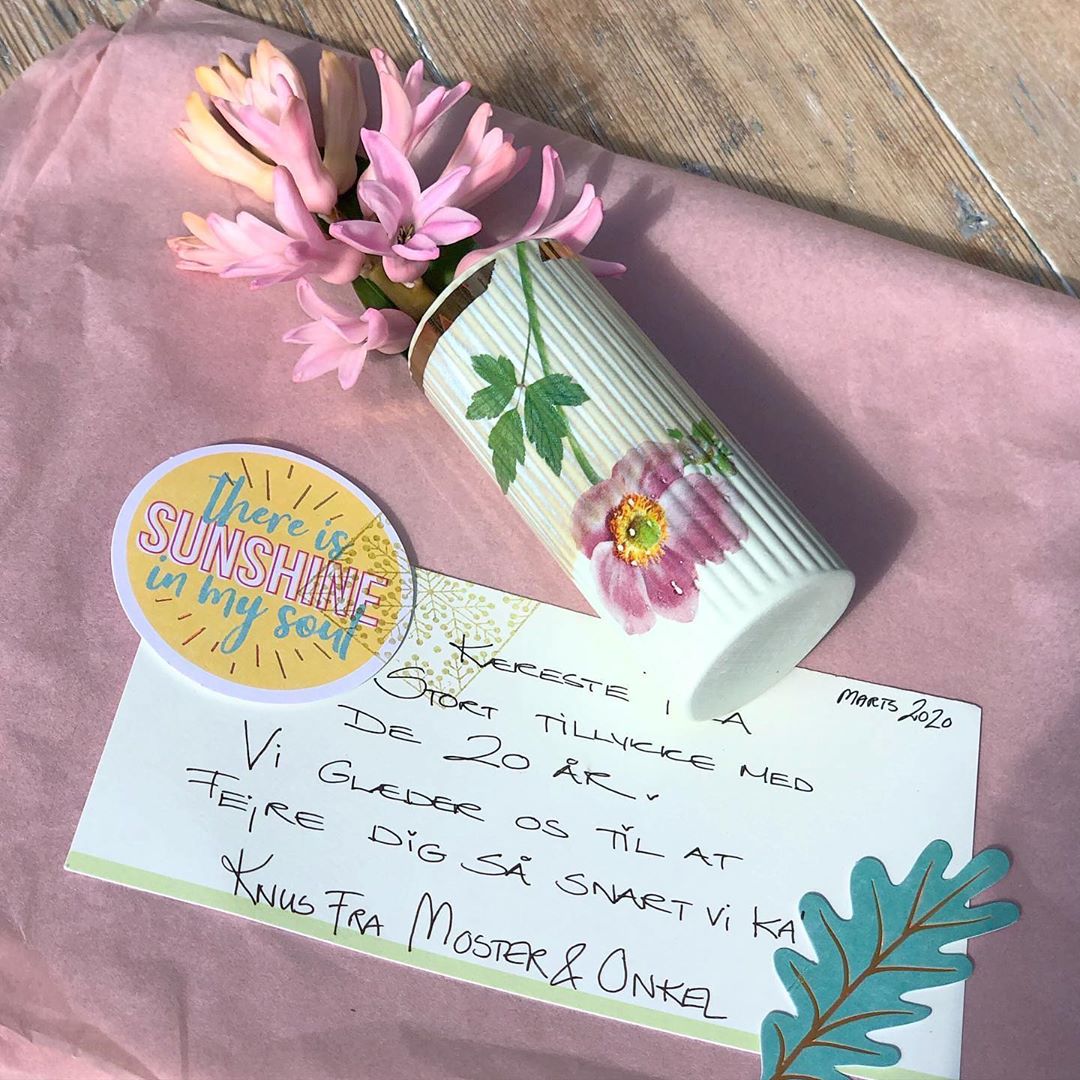 there is
SUNSHINE
in my soul
MARTS 2020
KÆRESTE
STORT TILLYKKE MED
DE 20 ÅR.
Vi GLÆDER OS TIL AT
FEJRE DIG SÅ SNART Vi KA'
KNUS FRA MOSTER & ONKEL